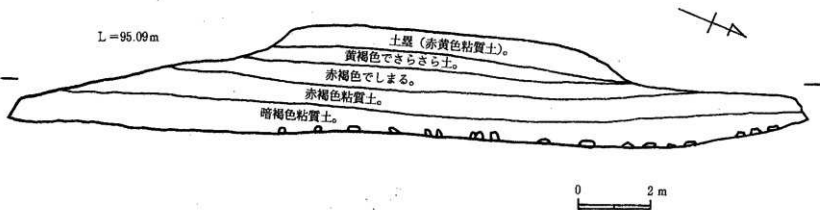 L=95.09m
土塁（赤黄色粘質土）。
黄褐色でさらさら土。
赤褐色でしまる。
赤褐色粘質土。
暗褐色粘質土。
0 2 m